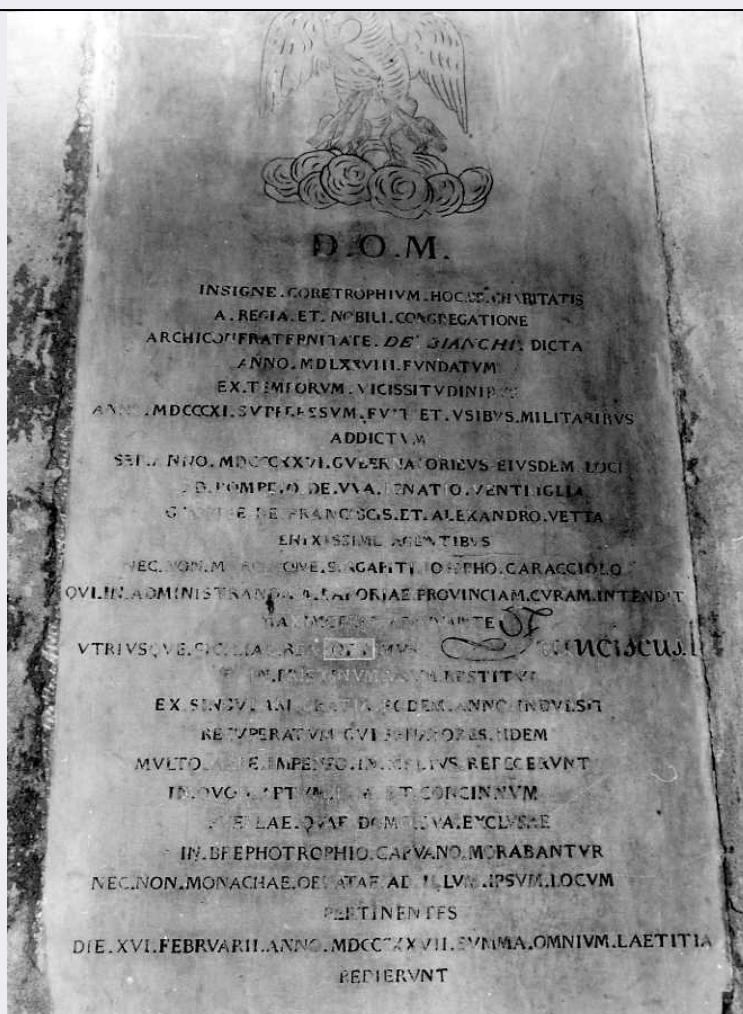 D.O.M.
INSIGNE.CORETROPHIVM.HOC.CHARITATIS
A.REGIA.ET.NOBILI.CONGREGATIONE
ARCHICONFRATERNITATE.DE' BIANCHI.DICTA
ANNO.MDLXXVIII.FVNDATVM
EX.TEMPORVM.VICISSITVDINIBVS
ANNO.MDCCCXI.SVPPRESSVM.FVIT ET.VSIBVS.MILITARIBVS
ADDICTVM
SED.ANNO.MDCCCXXVI.GVBERNATORIBVS EIVSDEM LOCI
D.POMPEIO.DE.VVA.IGNATIO.VENTIMIGLIA
DE FRANCISCIS.ET.ALEXANDRO.VETTA
ENIXISSIME AGENTIBVS
NEC.NON.CARACCIOLO
QVI.IN.ADMINISTRANDA.PROVINCIAM.CVRAM.INTENDIT
VTRIVSQVE.SICILIAE Franciscus.I
IN.PRISTINVM RESTITVI
EX SINGVLARI GRATIA EODEM.ANNO INDVLSIT
RECVPERATVM GVBERNATORES.IIDEM
MVLTO IMPENSO.IN.MELIVS REFECERVNT
IN.QVO APTVM ET.CONCINNVM
PVELLAE.QVAE EXCLVSAE
IN.BREPHOTROPHIO.CAPVANO.MORABANTVR
NEC.NON.MONACHAE.OBLATAE AD ILLVM.IPSVM.LOCVM
PERTINENTES
DIE.XVI.FEBRVARII.ANNO.MDCCCXXVII.SVMMA.OMNIVM.LAETITIA
REDIERVNT